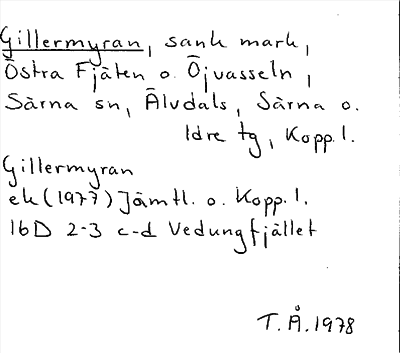 Gillermyran, sank mark,
Östra Fjäten o. Öjvasseln,
Särna sn, Älvdals, Särna o.
Idre tg, Kopp. l.
Gillermyran
ek (1977) Jämtl. o. Kopp. l.
16D 2-3 c-d Vedungfjället
T. Å. 1978